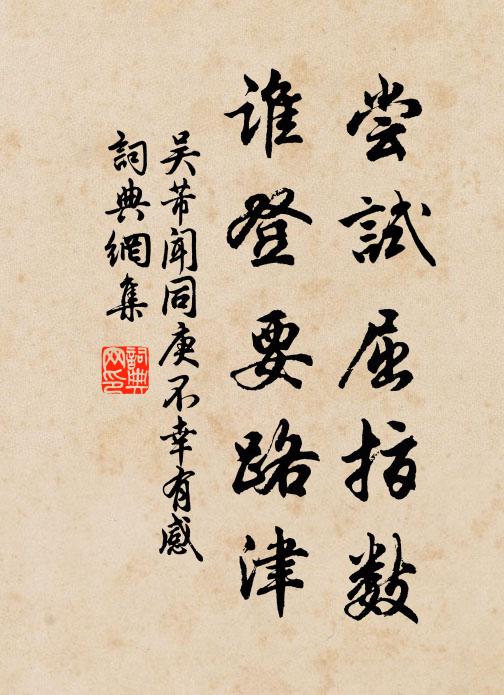 尝試屈指数
谁登要路津
吴芾闻同庚不幸有感
詞典網集
詞典
网印